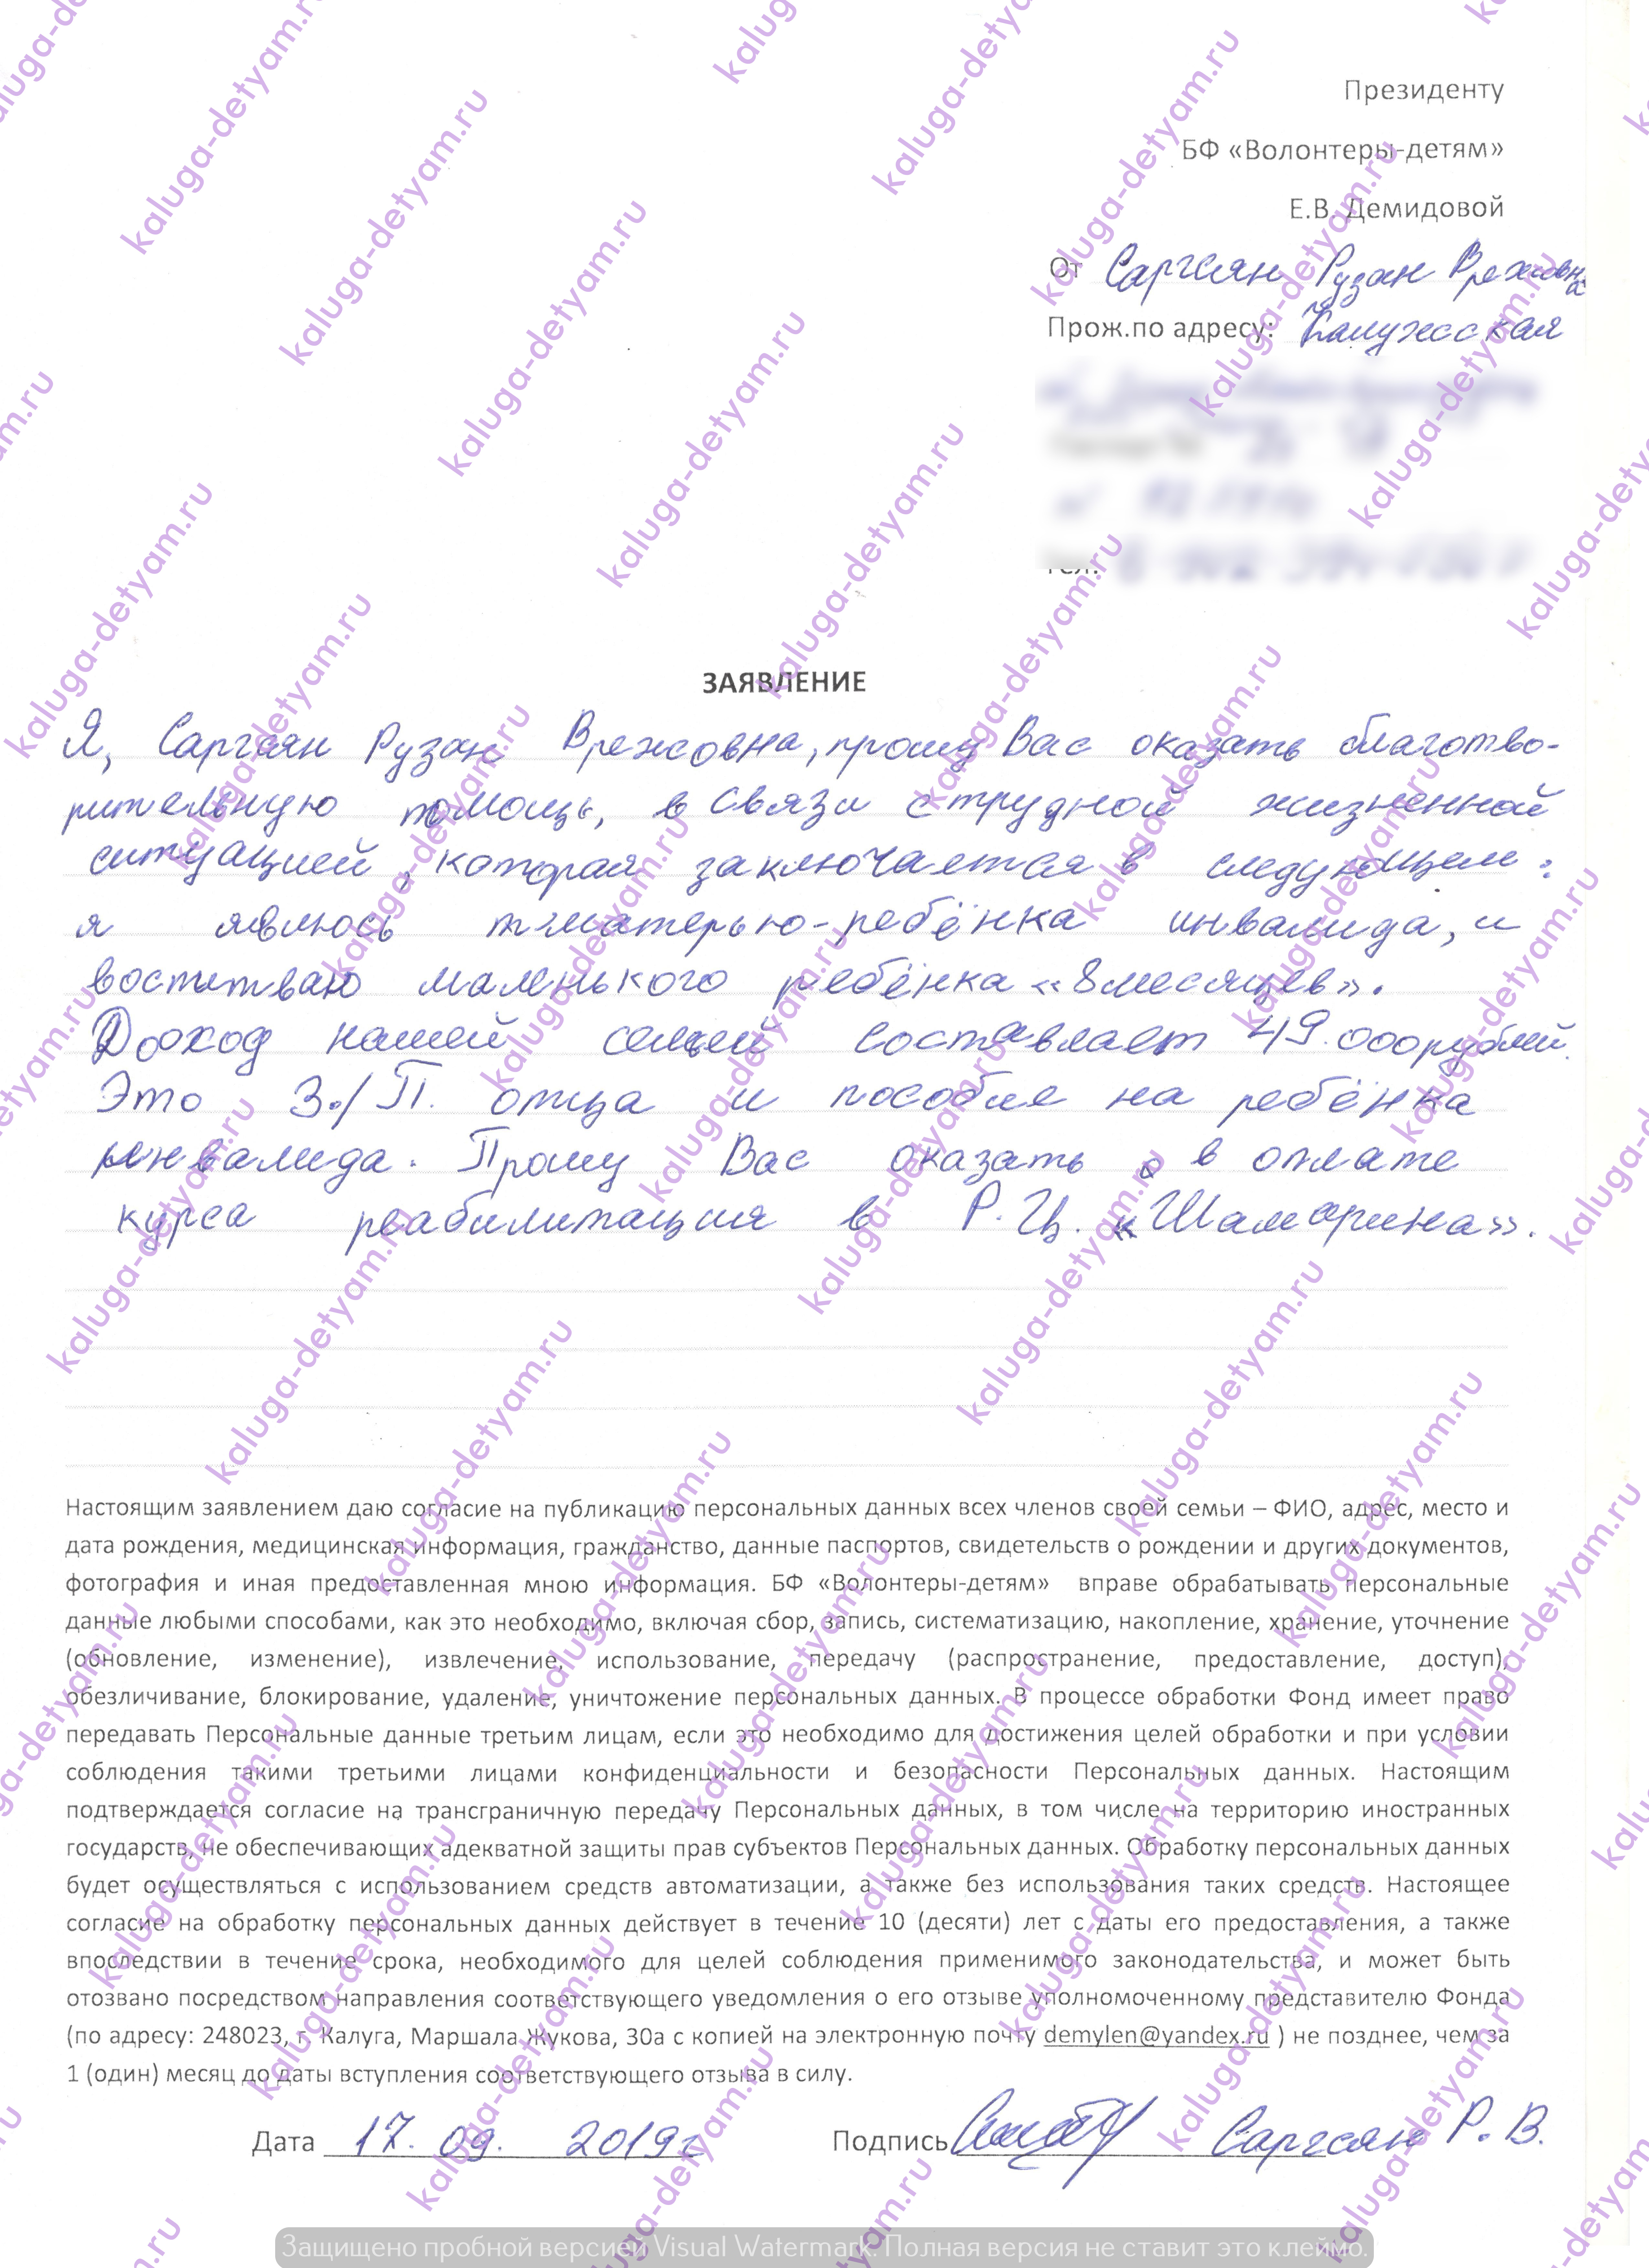 Президенту
БФ «Волонтеры-детям»
Е.В. Демидовой
От Саргсян Рузан Врежовна
Прож.по адресу: Калужская
тел.
ЗАЯВЛЕНИЕ
Я, Саргсян Рузан Врежовна, прошу Вас оказать благотво-
рительную помощь, в связи с трудной жизненной
ситуацией, которая заключается в следующем:
я являюсь матерью-ребёнка инвалида, и
воспитваю маленького ребёнка «8месяцев».
Доход нашей семьей составляет 49.000рублей.
Это З./П. отца и пособие на ребёнка
инвалида. Прошу Вас оказать в оплате
курса реабилитация в Р.Ц. «Шамарина».
Настоящим заявлением даю согласие на публикацию персональных данных всех членов своей семьи – ФИО, адрес, место и
дата рождения, медицинская информация, гражданство, данные паспортов, свидетельств о рождении и других документов,
фотография и иная предоставленная мною информация. БФ «Волонтеры-детям» вправе обрабатывать персональные
данные любыми способами, как это необходимо, включая сбор, запись, систематизацию, накопление, хранение, уточнение
(обновление, изменение), извлечение, использование, передачу (распространение, предоставление, доступ),
обезличивание, блокирование, удаление, уничтожение персональных данных. В процессе обработки Фонд имеет право
передавать Персональные данные третьим лицам, если это необходимо для достижения целей обработки и при условии
соблюдения такими третьими лицами конфиденциальности и безопасности Персональных данных. Настоящим
подтверждается согласие на трансграничную передачу Персональных данных, в том числе на территорию иностранных
государств, не обеспечивающих адекватной защиты прав субъектов Персональных данных. Обработку персональных данных
будет осуществляться с использованием средств автоматизации, а также без использования таких средств. Настоящее
согласие на обработку персональных данных действует в течение 10 (десяти) лет с даты его предоставления, а также
впоследствии в течение срока, необходимого для целей соблюдения применимого законодательства, и может быть
отозвано посредством направления соответствующего уведомления о его отзыве уполномоченному представителю Фонда
(по адресу: 248023, г. Калуга, Маршала Жукова, 30а с копией на электронную почту demylen@yandex.ru ) не позднее, чем за
1 (один) месяц до даты вступления соответствующего отзыва в силу.
Дата 17. 09. 2019г Подпись Саргсян Р. В.
Защищено пробной версией Visual Watermark. Полная версия не ставит это клеймо.
kaluga-detyam.ru